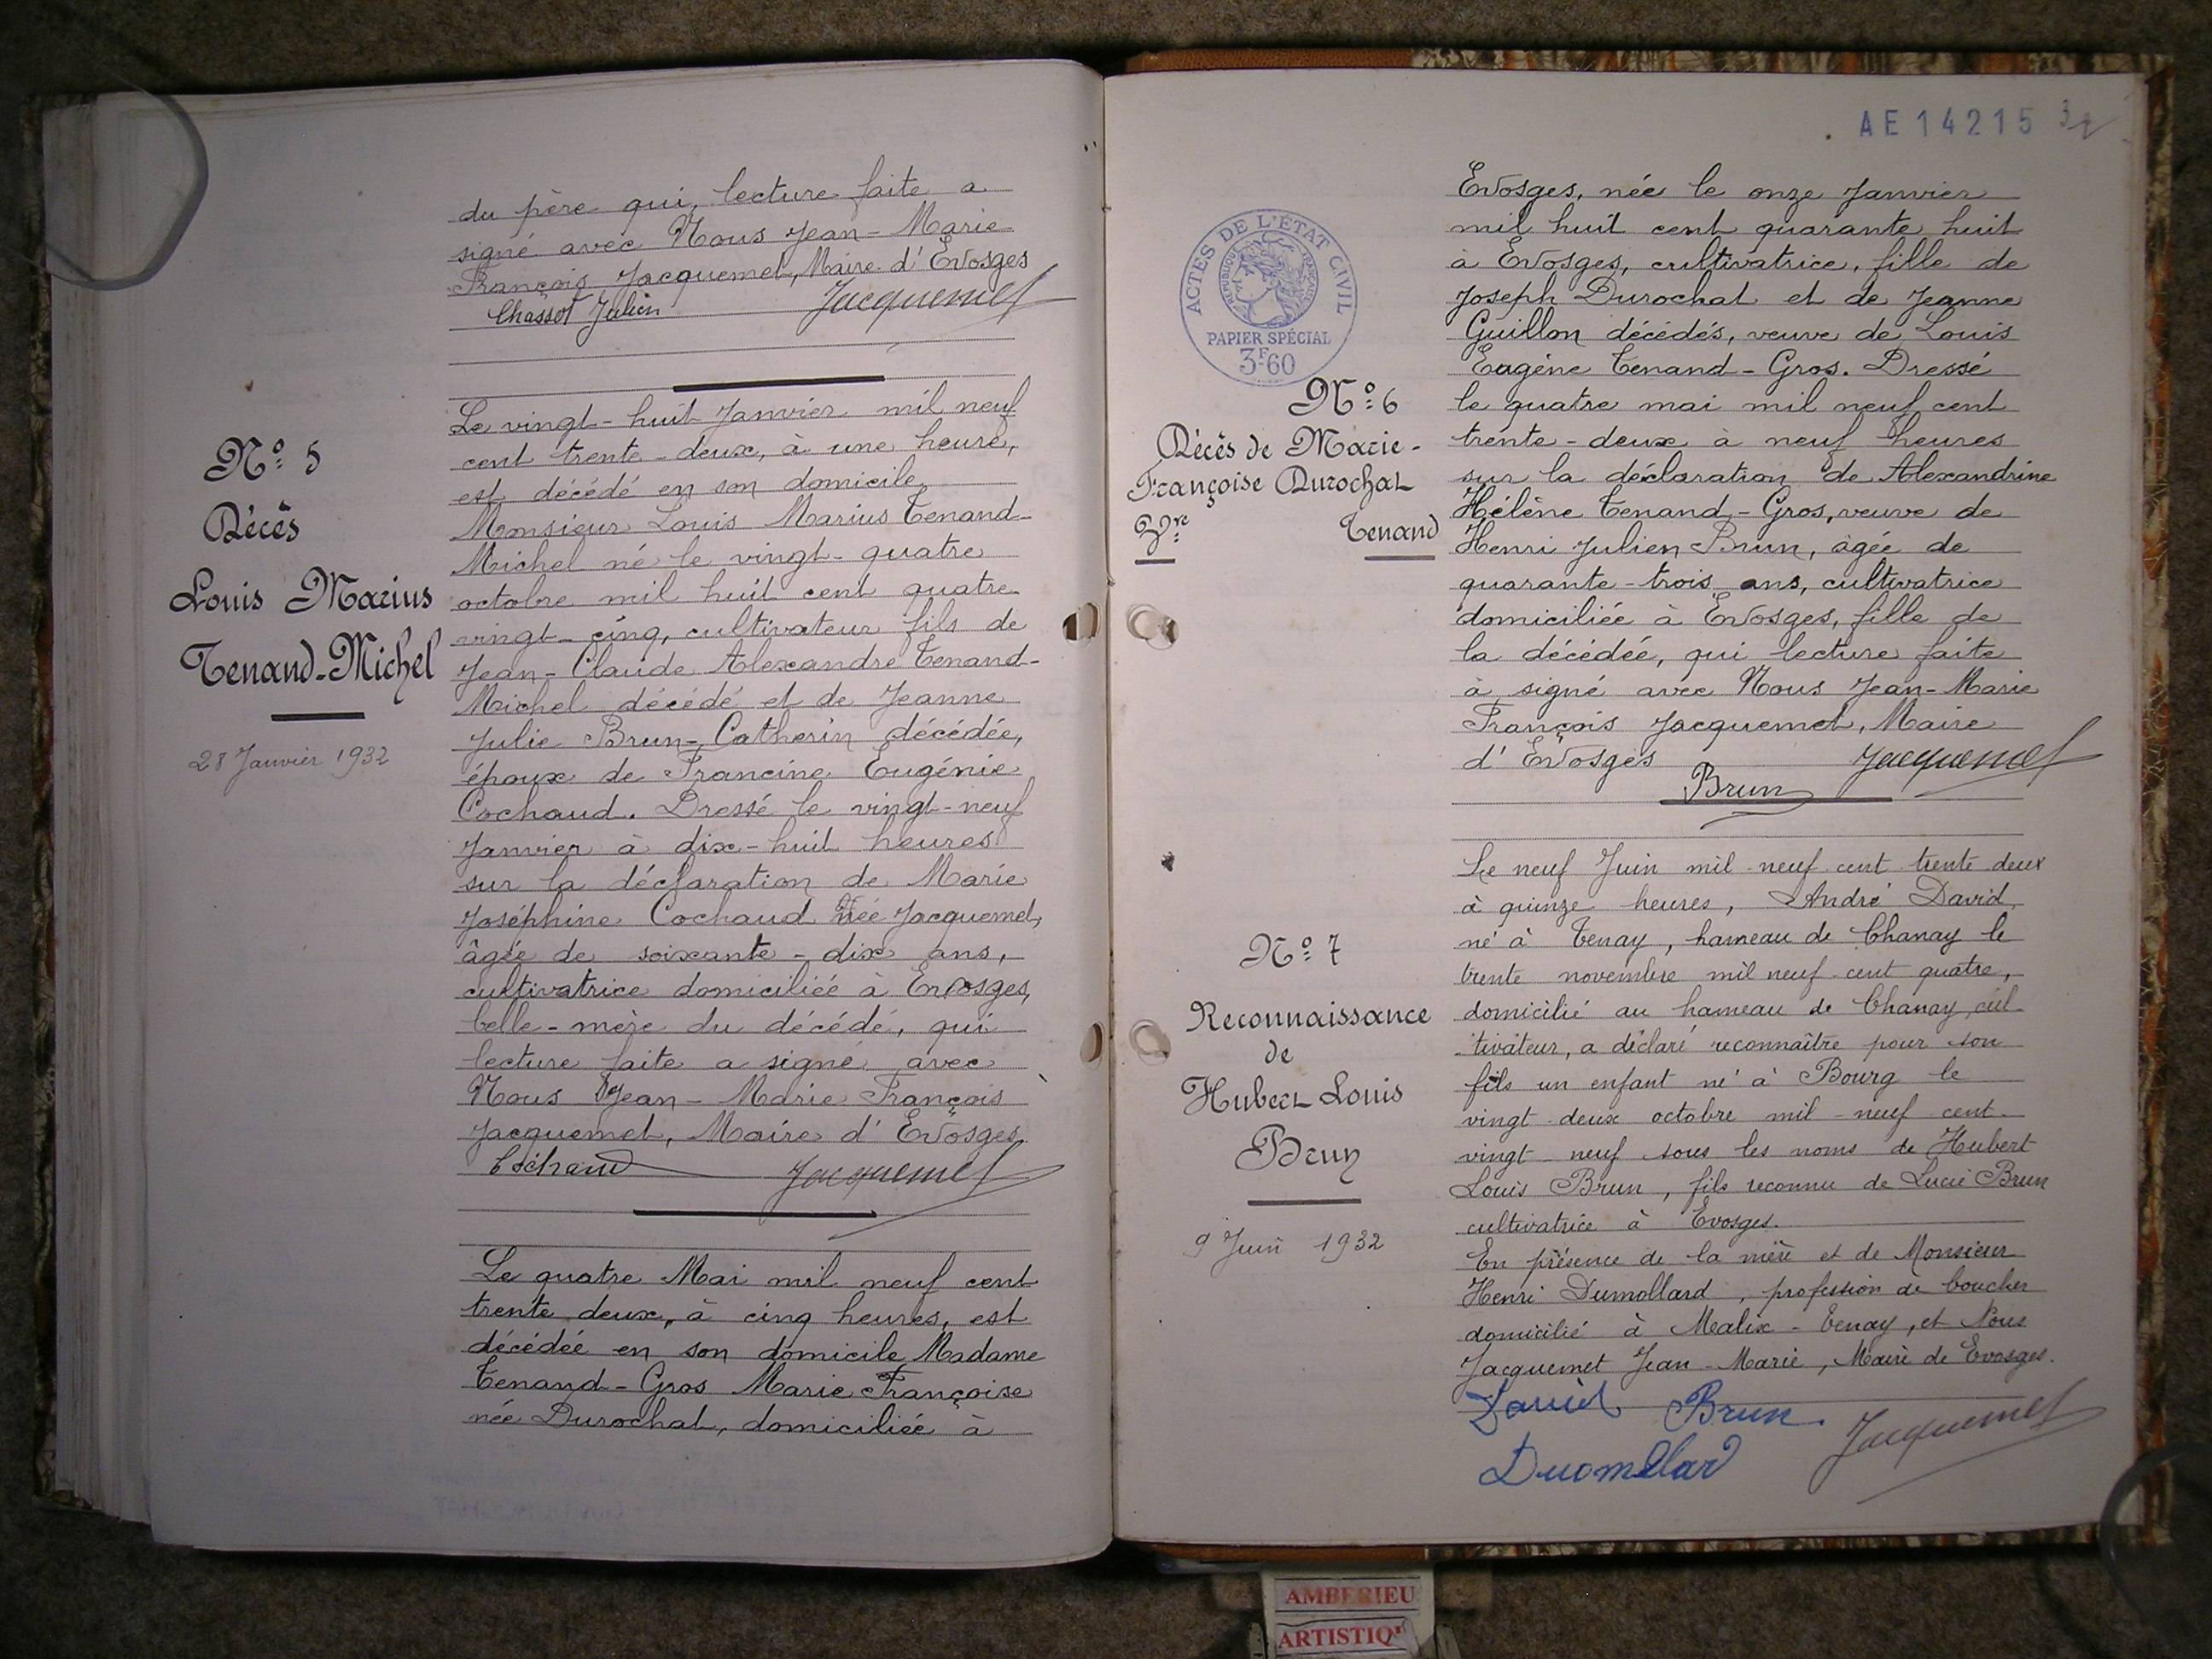 du père qui, lecture faite a
signé avec Nous Jean-Marie
François Jacquemet, Maire d'Evosges
Chassot Julien Jacquemet
Nº 5
Décès
Louis Marius
Tenand-Michel
28 Janvier 1932
Le vingt-huit Janvier mil neuf
cent trente-deux, à une heure,
est décédé en son domicile
Monsieur Louis Marius Tenand-
Michel né le vingt-quatre
octobre mil huit cent quatre
vingt-cinq, cultivateur fils de
Jean-Claude Alexandre Tenand-
Michel décédé et de Jeanne
Julie Brun-Catherin décédée,
époux de Francine Eugénie
Cochaud. Dressé le vingt-neuf
Janvier à dix-huit heures
sur la déclaration de Marie
Joséphine Cochaud née Jacquemet,
âgée de soixante-dix ans,
cultivatrice domiciliée à Evosges,
belle-mère du décédé, qui
lecture faite a signé avec
Nous Jean-Marie François
Jacquemet, Maire d'Evosges.
Cochaud Jacquemet
Le quatre Mai mil neuf cent
trente deux, à cinq heures, est
décédée en son domicile Madame
Tenand-Gros Marie Françoise
née Durochat, domiciliée à
AE14215
ACTES DE L'ÉTAT CIVIL
REPUBLIQUE FRANÇAISE
PAPIER SPÉCIAL
3F60
Nº 6
Décès de Marie-
Françoise Durochat
Vve Tenand
Evosges, née le onze Janvier
mil huit cent quarante huit
à Evosges, cultivatrice, fille de
Joseph Durochat et de Jeanne
Guillon décédés, veuve de Louis
Eugène Tenand-Gros. Dressé
le quatre mai mil neuf cent
trente-deux à neuf heures
sur la déclaration de Alexandrine
Hélène Tenand-Gros, veuve de
Henri Julien Brun, âgée de
quarante-trois ans, cultivatrice
domiciliée à Evosges, fille de
la décédée, qui lecture faite
à signé avec Nous Jean-Marie
François Jacquemet, Maire
d'Evosges Jacquemet
Brun
Nº 7
Reconnaissance
de
Hubert Louis
Brun
9 Juin 1932
Le neuf Juin mil-neuf cent trente deux
à quinze heures, André David,
né à Tenay, hameau de Chanay le
trente novembre mil neuf-cent quatre,
domicilié au hameau de Chanay, cul-
tivateur, a déclaré reconnaître pour son
fils un enfant né à Bourg le
vingt-deux octobre mil-neuf cent-
vingt-neuf sous les noms de Hubert
Louis Brun, fils reconnu de Lucie Brun
cultivatrice à Evosges.
En présence de la mère et de Monsieur
Henri Dumollard, profession de boucher
domicilié à Malix-Tenay, et Nous
Jacquemet Jean-Marie, Maire de Evosges.
David Brun. Jacquemet
Duomollard
AMBERIEU
ARTISTIQ